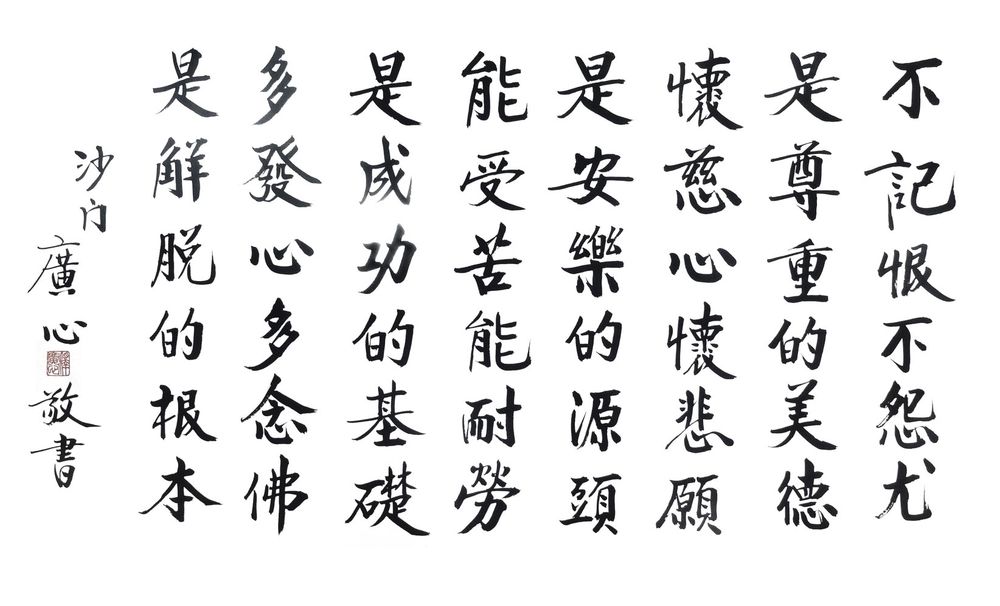 不記恨不怨尤
是尊重的美德
懷慈心懷悲願
是安樂的源頭
能受苦能耐勞
是成功的基礎
多發心多念佛
是解脱的根本
沙门廣心敬書